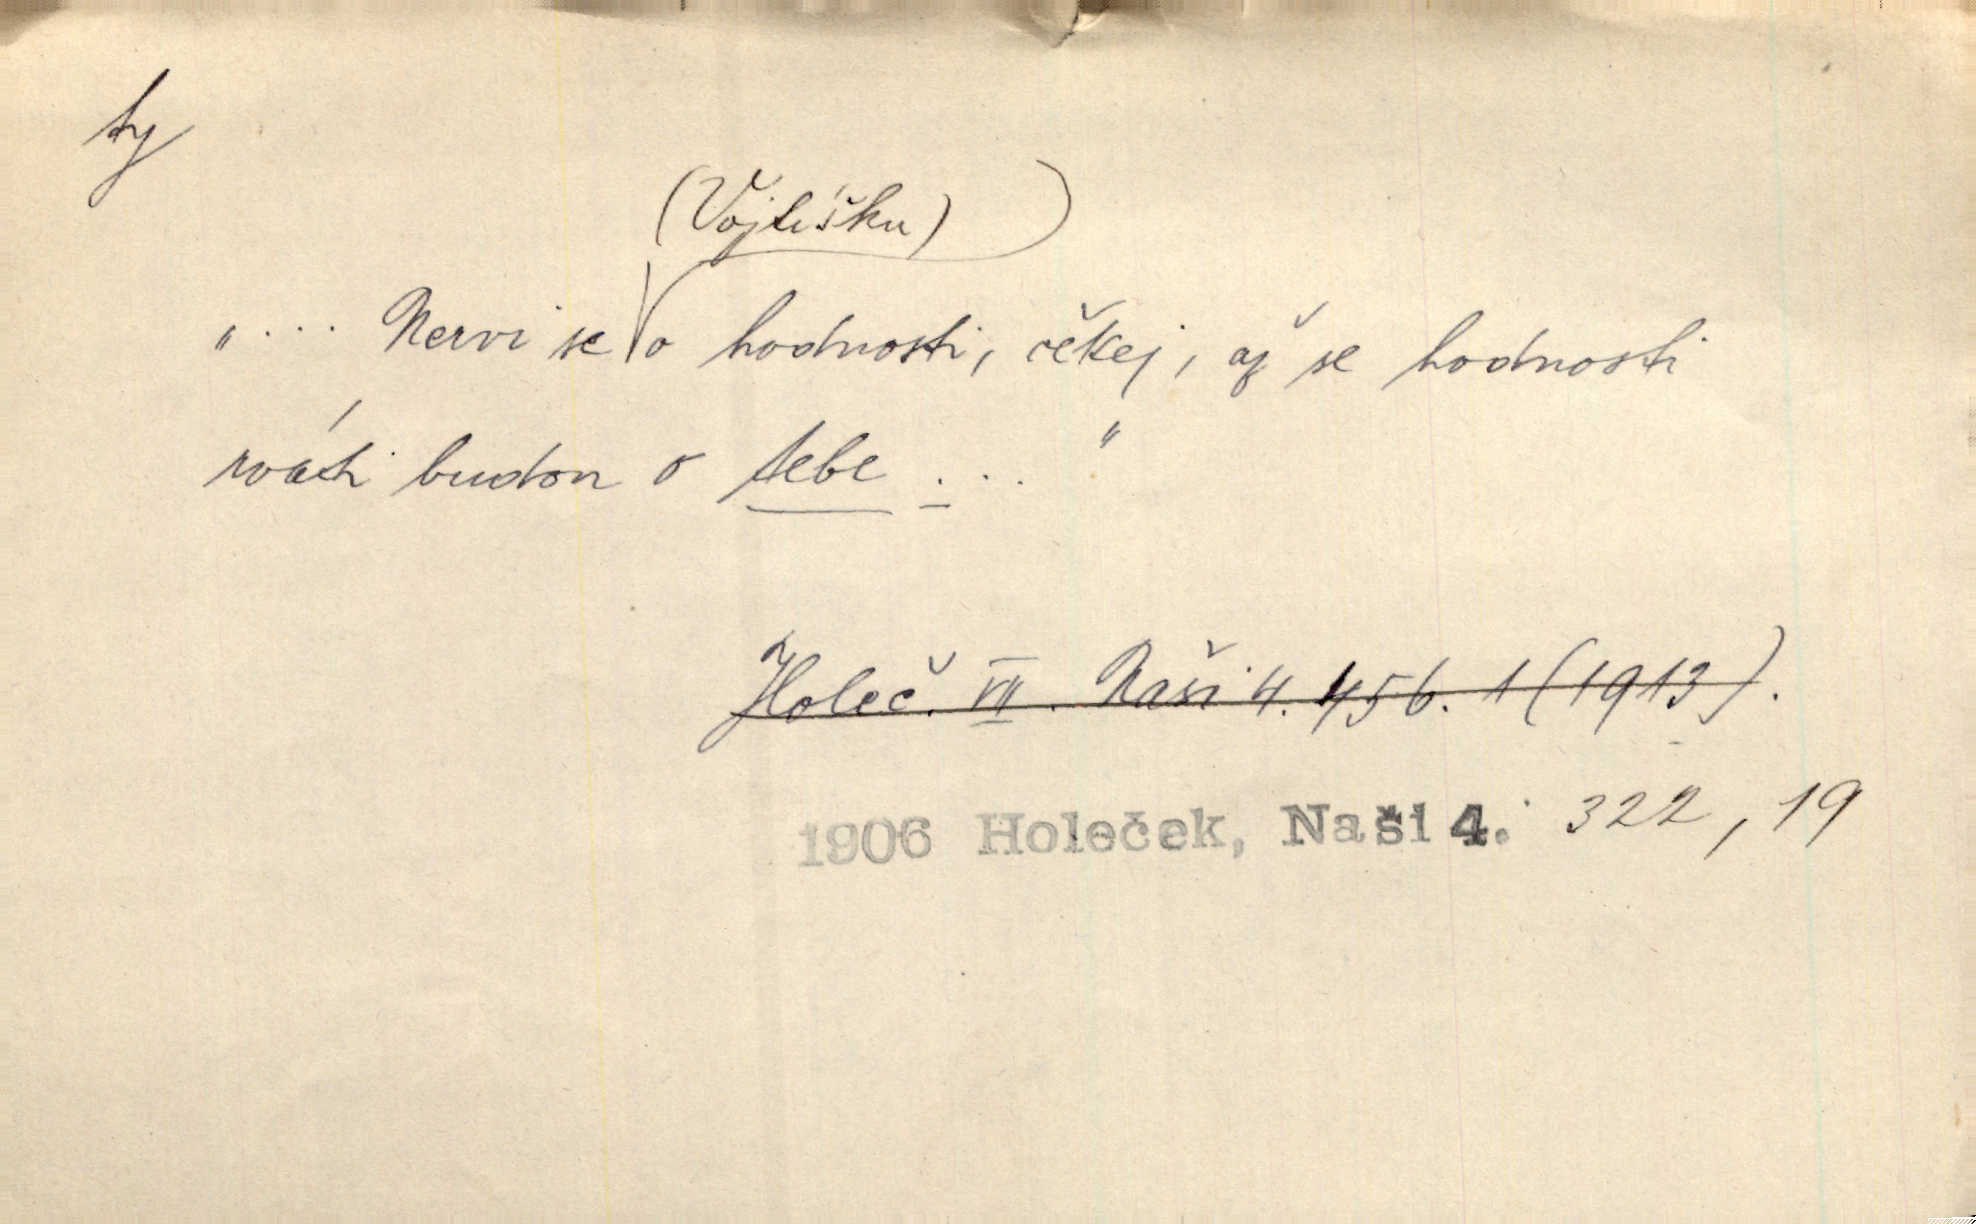 ty
(Vojtíšku)
„... Nervi se o hodnosti, čekej, až se hodnosti
rváti budou o tebe ... "
Holeč. VII. Naši 4. 456. 1 (1913).
1906 Holeček, Naši 4. 322, 19